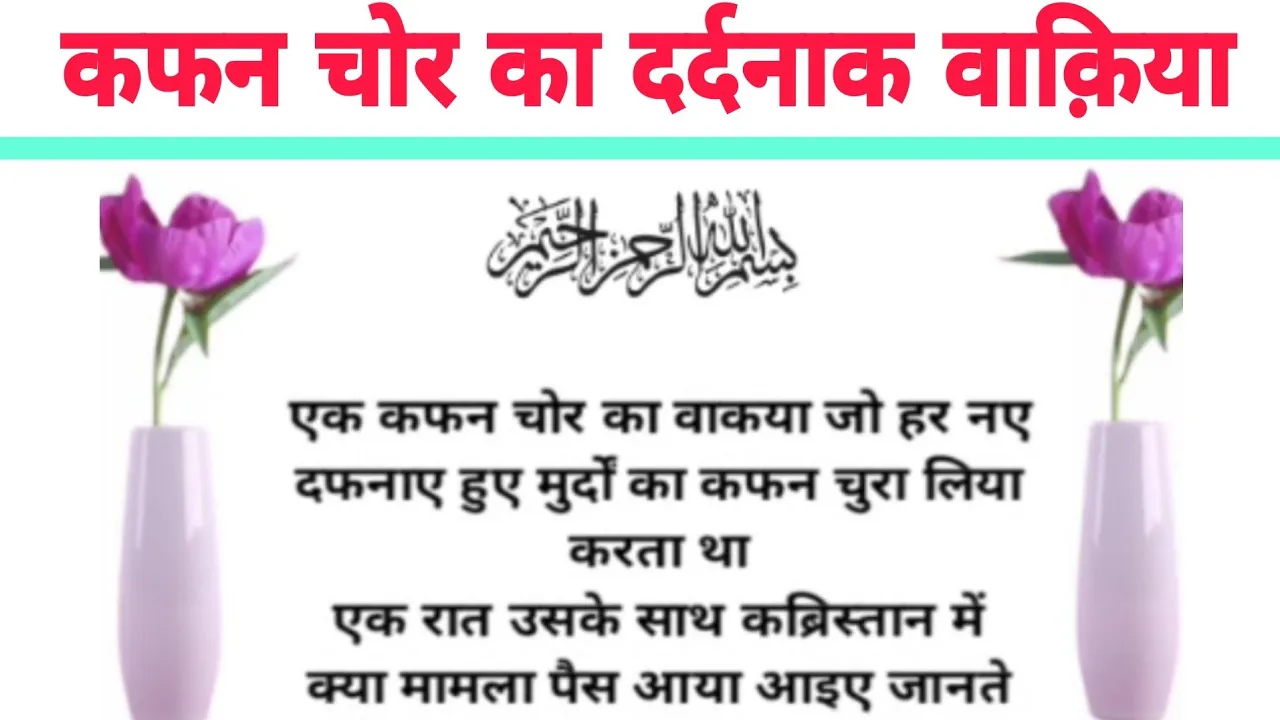 कफन चोर का दर्दनाक वाक़िया
بسم الله الرحمن الرحيم
एक कफन चोर का वाकया जो हर नए
दफनाए हुए मुर्दों का कफन चुरा लिया
करता था
एक रात उसके साथ कब्रिस्तान में
क्या मामला पैस आया आइए जानते